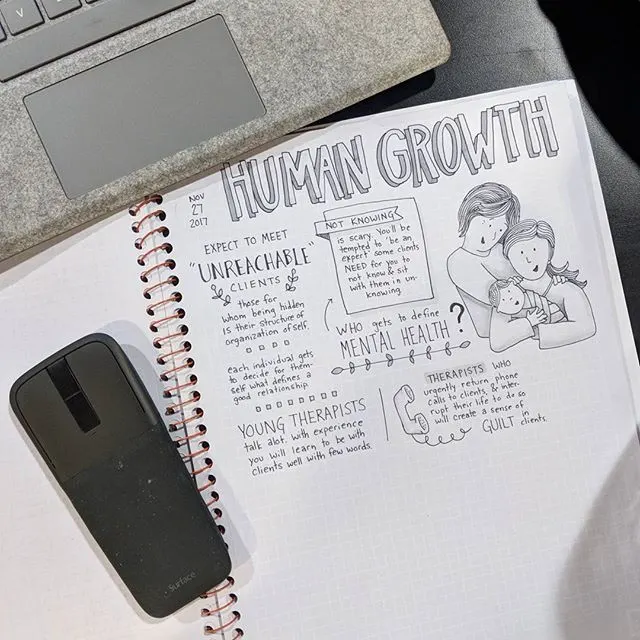 HUMAN GROWTH
NOV
27
2017
EXPECT TO MEET
"UNREACHABLE"
CLIENTS
those for
whom being hidden
is their structure of
organization of self.
each individual gets
to decide for them-
self what defines a
good relationship.
YOUNG THERAPISTS
talk alot. With experience
you will learn to be with
clients well with few words.
NOT KNOWING
is scary. You'll be
tempted to "be an
expert" some clients
NEED for you to
not know & sit
with them in un-
knowing.
WHO gets to define
MENTAL HEALTH?
THERAPISTS WHO
urgently return phone
calls to clients, & inter-
rupt their life to do so
will create a sense of
GUILT in clients.
Surface